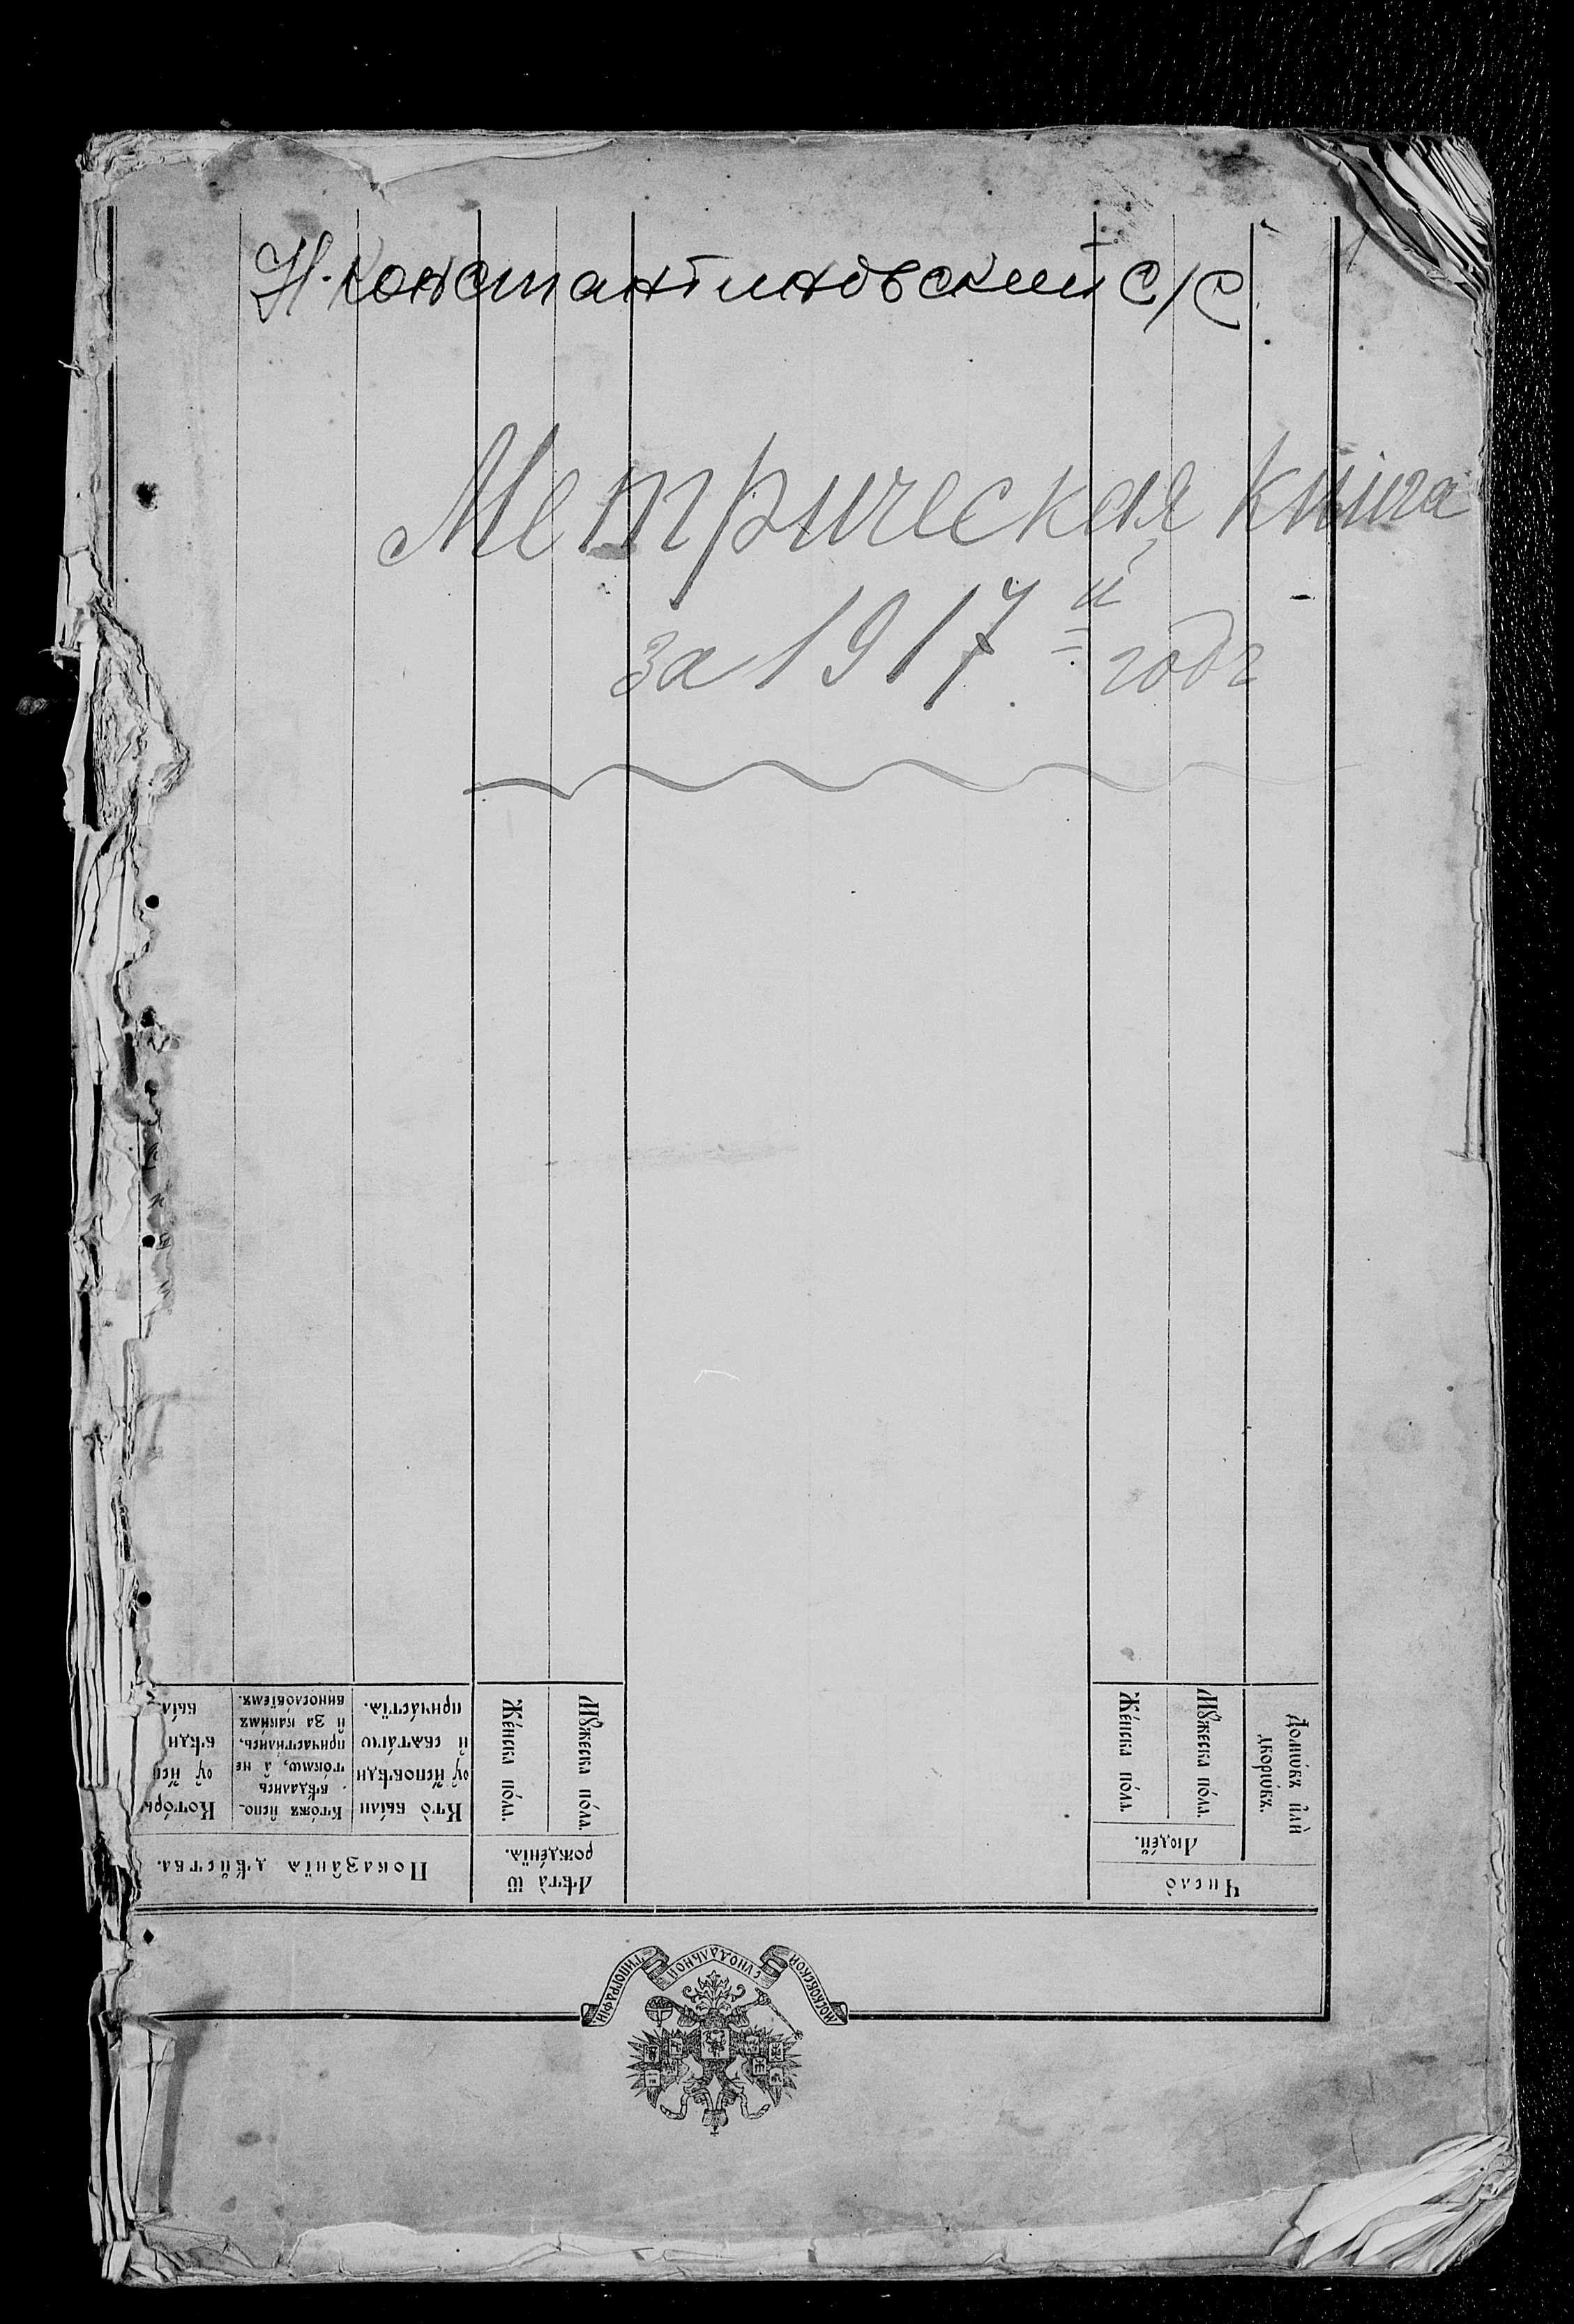 Н. Константиновский с/с.
Метрическая книга
за 1917 й годъ
Число
Людей.
Домѡвъ или дворѡвъ.
Мꙋжеска по́ла.
Же́нска по́ла.
Лѣта̀ ѿ рожде́нїѧ.
Мꙋжеска по́ла.
Же́нска по́ла.
Показа̑нїѧ дѣ́йства.
Кто̀ бы́ли
оу҆ и҆сповѣди
и҆ свѧта́гѡ
прича́стїѧ.
Кто́жъ и҆спо-
вѣдались
то́кмѡ, а҆ не
причасти́лись,
и҆ за каки́мъ
винослові́емъ.
МОСКОВСКОЙ СѴНОДАЛЬНОЙ ТИПОГРАФІИ